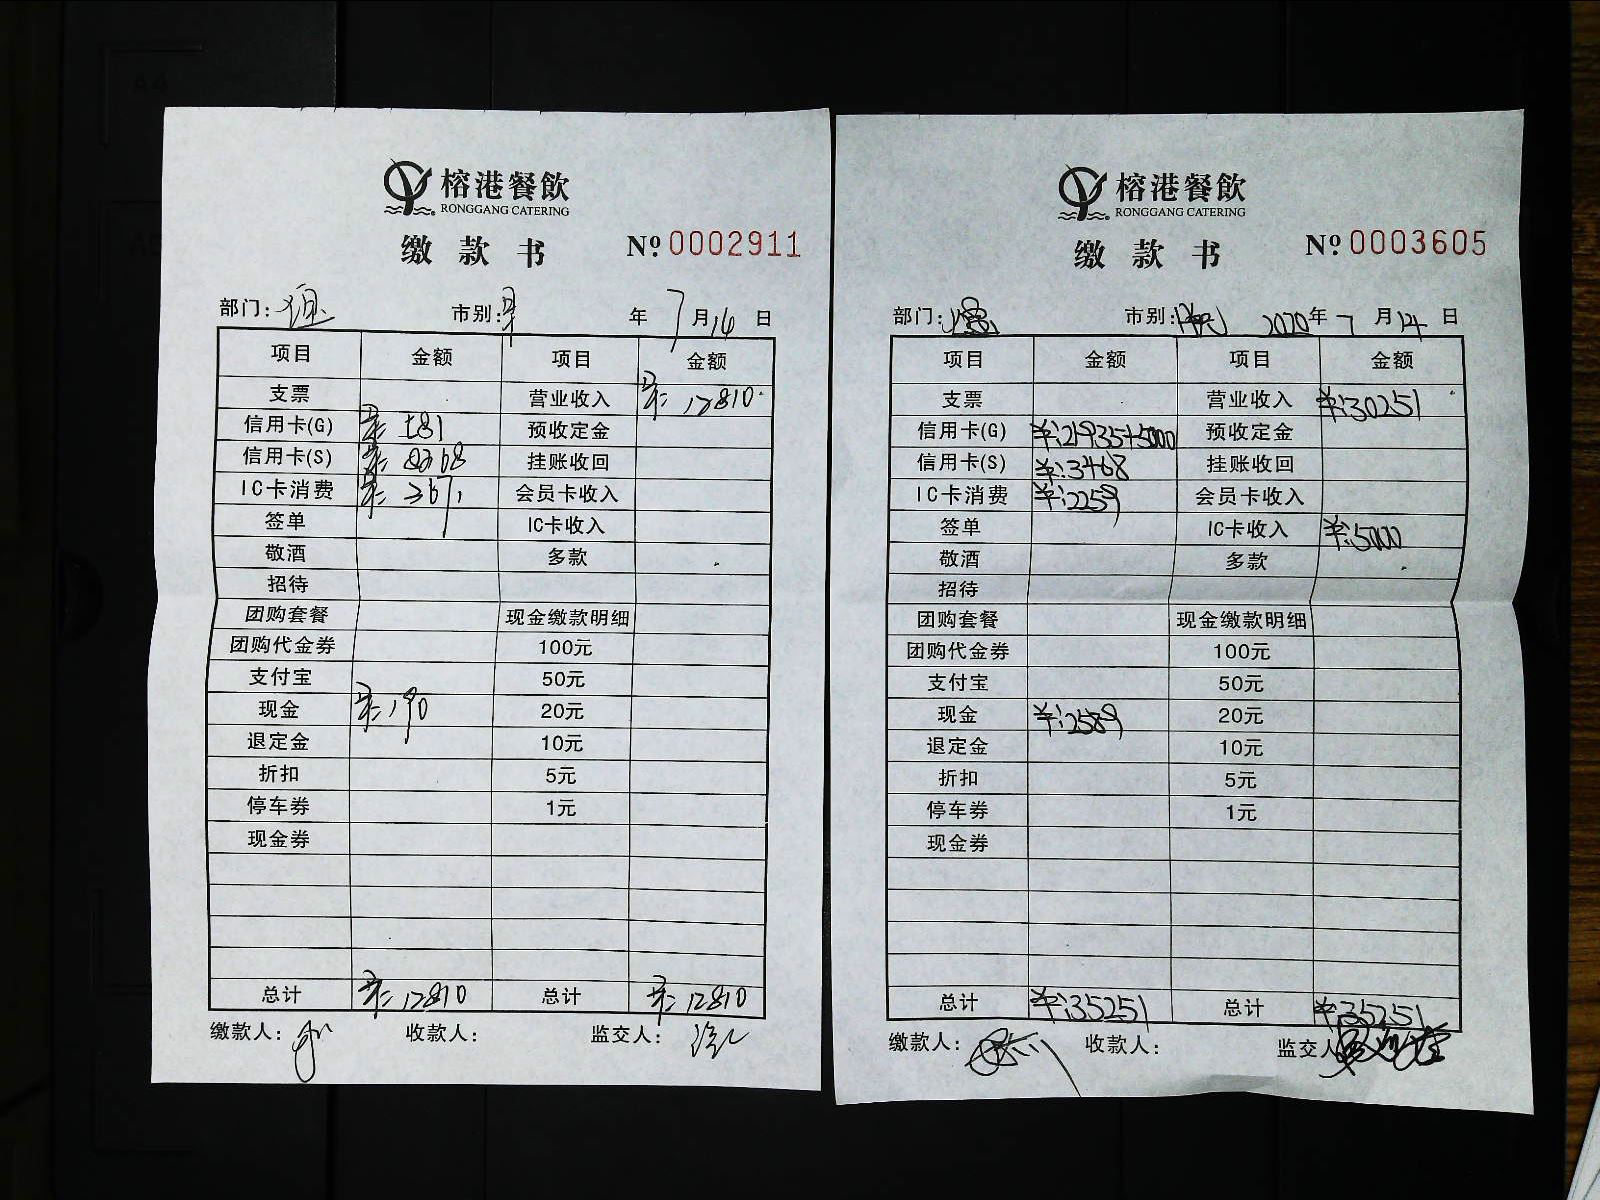 榕港餐飲
RONGGANG CATERING
缴款书 № 0002911
部门: 市别: 年 7月14日
项目 金额 项目 金额
支票 营业收入 12810
信用卡(G) 预收定金
信用卡(S) 挂账收回
IC卡消费 会员卡收入
签单 IC卡收入
敬酒 多款
招待
团购套餐 现金缴款明细
团购代金券 100元
支付宝 50元
现金 190 20元
退定金 10元
折扣 5元
停车券 1元
现金券
总计 12810 总计 12810
缴款人: 收款人: 监交人:
榕港餐飲
RONGGANG CATERING
缴款书 № 0003605
部门: 市别: 2020年 7月14日
项目 金额 项目 金额
支票 营业收入 ¥:30251
信用卡(G) ¥:21935+5000 预收定金
信用卡(S) ¥:3468 挂账收回
IC卡消费 ¥:2259 会员卡收入
签单 IC卡收入 ¥:5000
敬酒 多款
招待
团购套餐 现金缴款明细
团购代金券 100元
支付宝 50元
现金 ¥:2589 20元
退定金 10元
折扣 5元
停车券 1元
现金券
总计 ¥:35251 总计 ¥:35251
缴款人: 收款人: 监交人